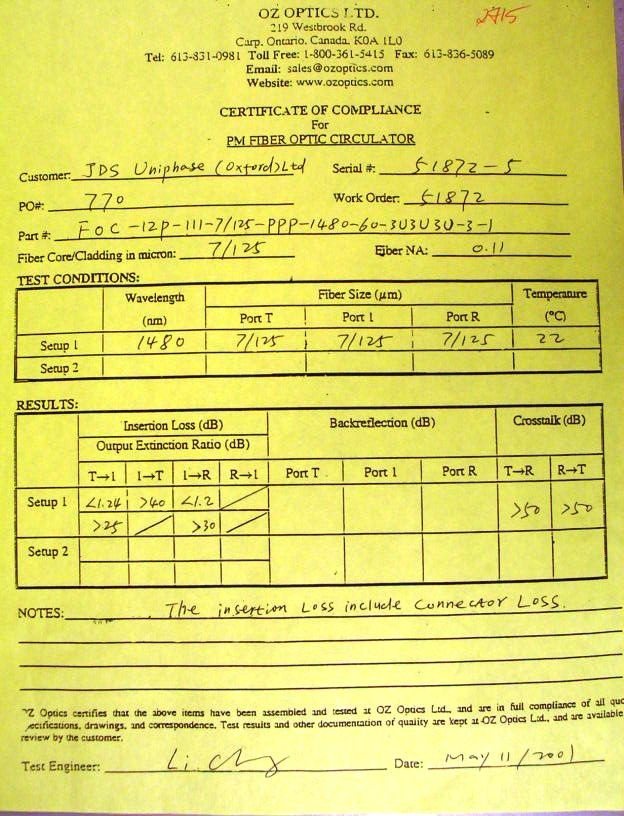 OZ OPTICS LTD.
2715
219 Westbrook Rd.
Carp, Ontario, Canada, K0A 1L0
Tel: 613-831-0981 Toll Free: 1-800-361-5415 Fax: 613-836-5089
Email: sales@ozoptics.com
Website: www.ozoptics.com
CERTIFICATE OF COMPLIANCE
For
PM FIBER OPTIC CIRCULATOR
Customer: JDS Uniphase (Oxford) Ltd Serial #: 51872-5
PO#: 770 Work Order: 51872
Part #: FOC-12P-111-7/125-PPP-1480-60-3U3U3U-3-1
Fiber Core/Cladding in micron: 7/125 Fiber NA: 0.11
TEST CONDITIONS:
Wavelength (nm) Fiber Size (μm) Temperature (°C)
Port T Port 1 Port R
Setup 1 1480 7/125 7/125 7/125 22
Setup 2
RESULTS:
Insertion Loss (dB) Backreflection (dB) Crosstalk (dB)
Output Extinction Ratio (dB)
T→1 1→T 1→R R→1 Port T Port 1 Port R T→R R→T
Setup 1 <1.24 >40 <1.2 >50 >50
>25 >30
Setup 2
NOTES: The insertion Loss include Connector Loss.
OZ Optics certifies that the above items have been assembled and tested at OZ Optics Ltd., and are in full compliance of all quo
ecifications, drawings, and correspondence. Test results and other documentation of quality are kept at OZ Optics Ltd., and are available
review by the customer.
Test Engineer: Li Date: May 11/2001